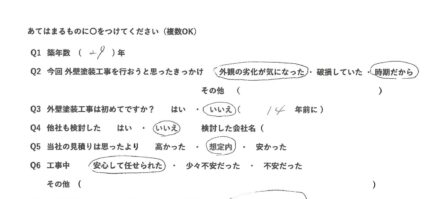 あてはまるものに〇をつけてください（複数OK）
Q1 築年数 （ 29 ）年
Q2 今回 外壁塗装工事を行おうと思ったきっかけ 外観の劣化が気になった ・ 破損していた ・ 時期だから
その他 （ ）
Q3 外壁塗装工事は初めてですか？ はい ・ いいえ（ 14 年前に ）
Q4 他社も検討した はい ・ いいえ 検討した会社名（
Q5 当社の見積りは思ったより 高かった ・ 想定内 ・ 安かった
Q6 工事中 安心して任せられた ・ 少々不安だった ・ 不安だった
その他 （ ）